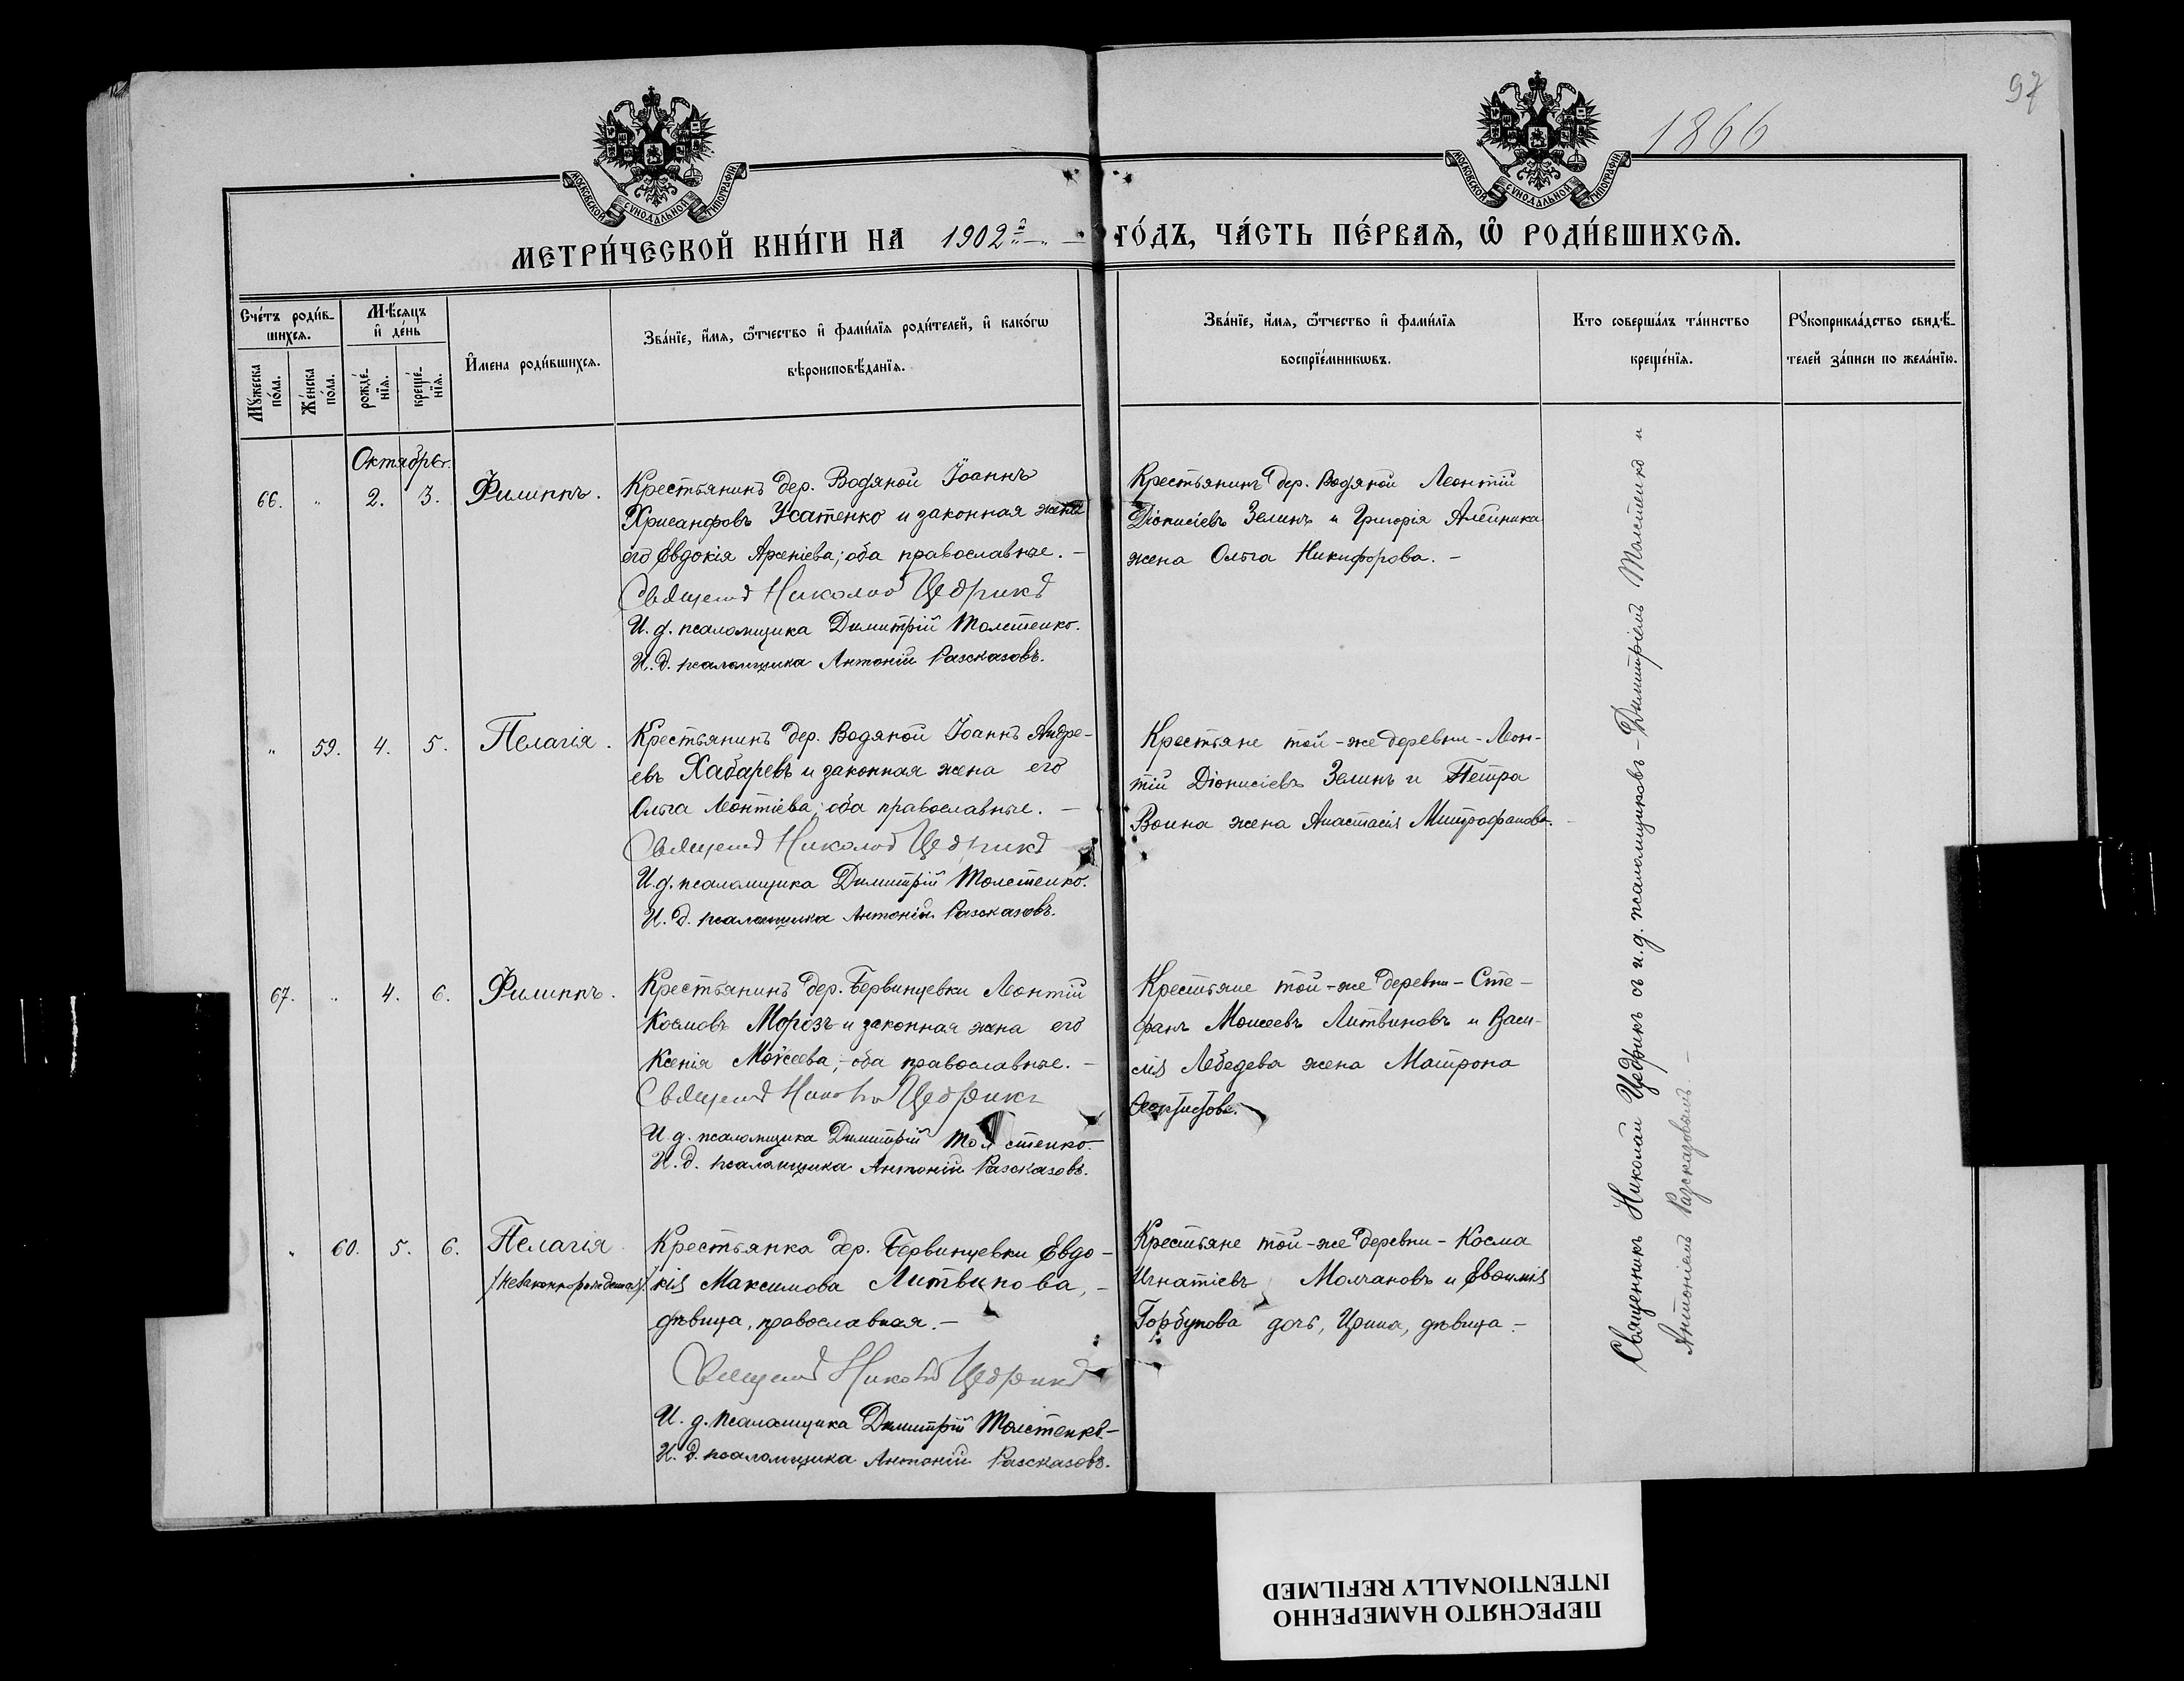 97
1866
МОСКОВСКОЙ СѴНОДАЛЬНОЙ ТИПОГРАФІИ
МОСКОВСКОЙ СѴНОДАЛЬНОЙ ТИПОГРАФІИ
МЕТРИ́ЧЕСКОЙ КНИ́ГИ НА 1902й ГО́ДЪ, ЧА́СТЬ ПЕ́РВАѦ, Ѽ РОДИ́ВШИХСѦ.
Сче́тъ роди́в-
шихсѧ.
Мꙋ́жеска по́ла.
Же́нска по́ла.
Мѣ́сѧцъ
и҆ де́нь
рожде́-
нїѧ.
креще́-
нїѧ.
И҆мена роди́вшихсѧ.
Зва́нїе, и҆́мѧ, ѻ҆́тчество и҆ фами́лїѧ роди́телей, и҆ како́гѡ
вѣроисповѣ́данїѧ.
Зва́нїе, и҆́мѧ, ѻ҆́тчество и҆ фами́лїѧ
воспрїе́мникѡвъ.
Кто соверша́лъ та́инство
креще́нїѧ.
Рꙋкоприкла́дство свидѣ́-
телей за́писи по жела́нїю.
Октябрь.
66. " 2. 3. Филиппъ.
Крестьянинъ дер. Водяной Іоаннъ
Хрисанфовъ Усатенко и законная жена
его Евдокія Арсеніева; оба православные. –
Священ Николай Цедрикъ
И. д. псаломщика Димитрій Толстенко.
И. д. псаломщика Антоній Разсказовъ.
Крестьянинъ дер. Водяной Леонтій
Діонисіевъ Зелинъ и Григорія Алейника
жена Ольга Никифорова. –
" 59. 4. 5. Пелагія.
Крестьянинъ дер. Водяной Іоаннъ Андре-
евъ Хабаревъ и законная жена его
Ольга Леонтіева; оба православные. –
Священ Николай Цедрикъ
И. д. псаломщика Димитрій Толстенко.
И. д. псаломщика Антоній Разсказовъ.
Крестьяне той-же деревни - Леон-
тій Діонисіевъ Зелинъ и Петра
Воина жена Анастасія Митрофанова. –
67. " 4. 6. Филиппъ.
Крестьянинъ дер. Бервинцевки Леонтій
Космовъ Морозъ и законная жена его
Ксенія Мойсеева; - оба православные. –
Священ Николай Цедрикъ
И. д. псаломщика Димитрій Толстенко.
И. д. псаломщика Антоній Разсказовъ.
Крестьяне той-же деревни - Сте-
фанъ Моисеевъ Литвиновъ и Васи-
лія Лебедева жена Матрона
" 60. 5. 6. Пелагія
/незаконнорожденная/.
Крестьянка дер. Бервинцевки Евдо-
кія Максимова Литвинова, -
дѣвица, православная. –
Священ Николай Цедрикъ
И. д. псаломщика Димитрій Толстенко. –
И. д. псаломщика Антоній Разсказовъ.
Крестьяне той-же деревни - Косма
Игнатіевъ Молчановъ и Евѳимія
Горбунова дочь, Ирина, дѣвица. –
Священникъ Николай Цедрикъ съ и. д. псаломщиковъ - Димитріемъ Толстенко и
Антоніемъ Разсказовымъ. –
ПЕРЕСНЯТО НАМЕРЕННО
INTENTIONALLY REFILMED